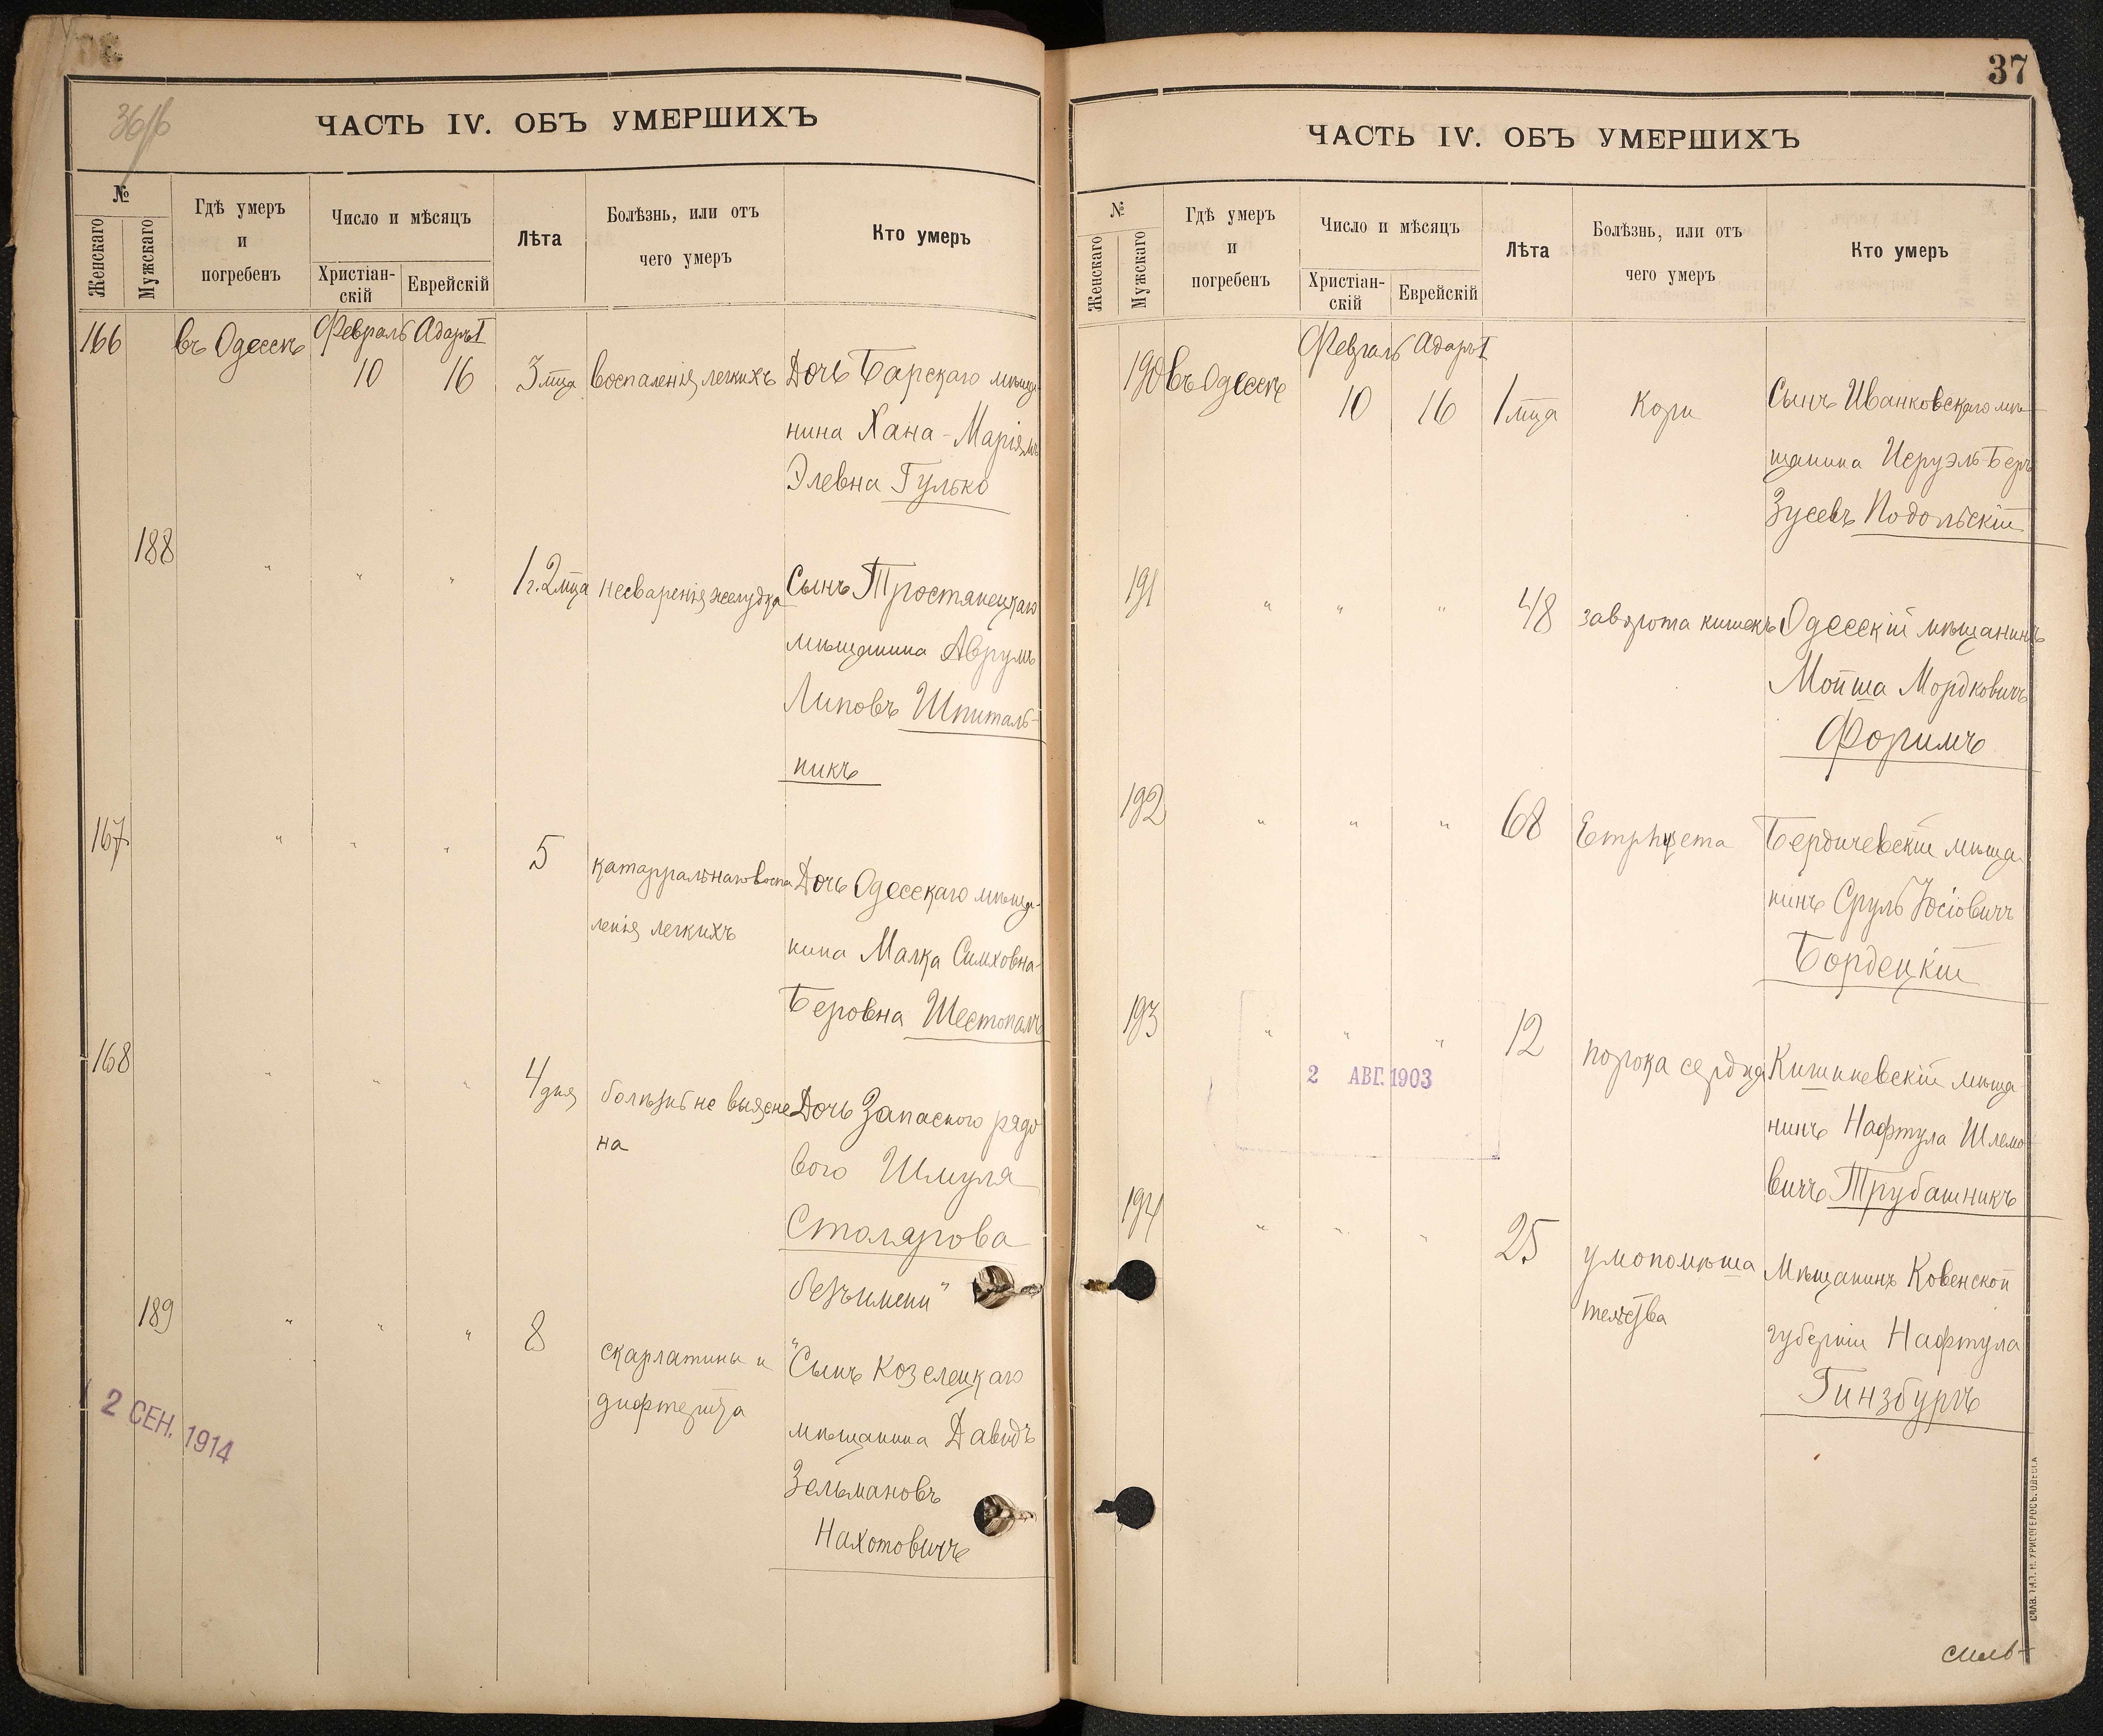 36/б
ЧАСТЬ IV. ОБЪ УМЕРШИХЪ
№
Женскаго
Мужскаго
Гдѣ умеръ
и
погребенъ
Число и мѣсяцъ
Христіан-
скій
Еврейскій
Лѣта
Болѣзнь, или отъ
чего умеръ
Кто умеръ
166 въ Одессѣ Февраль Адаръ I
10 16 3 мца воспаленія легкихъ Дочь Барскаго мѣща
нина Хана-Маріямъ
Элевна Гулько
188 " " " 1 г. 2 мца несваренія желудка Сынъ Тростянецкаго
мѣщанина Аврумъ
Липовъ Шпиталь-
никъ
167 " " " 5 катарральнаго воспа Дочь Одесскаго мѣща-
ленія легкихъ нина Малка Симховна-
Беровна Шестопалъ
168 " " " 4 дня болѣзнь не выясне Дочь Запаснаго рядо
на вого Шмуля
Столярова
безъимени"
189 " " " 8 скарлатины и "Сынъ Козелецкаго
дифтерита мѣщанина Давидъ
Зельмановъ
Нахотовичъ
2 СЕН. 1914
37
ЧАСТЬ IV. ОБЪ УМЕРШИХЪ
№
Женскаго
Мужскаго
Гдѣ умеръ
и
погребенъ
Число и мѣсяцъ
Христіан-
скій
Еврейскій
Лѣта
Болѣзнь, или отъ
чего умеръ
Кто умеръ
190 въ Одессѣ Февраль Адаръ I
10 16 1 мца Кори Сынъ Иванковскаго мѣ
щанина Исруэль-Беръ
Зусевъ Подольскій
191 " " " 48 заворота кишекъ Одесскій мѣщанинъ
Мойша Мордковичъ
Форимъ
192 " " " 68 Бердичевскій мѣща
нинъ Сруль Іосіовичъ
Бордецкій
193 " " " 12 порока сердца Кишиневскій мѣща
нинъ Нафтула Шлемо
вичъ Трубашникъ
2 АВГ. 1903
194 " " " 25 умопомѣша Мѣщанинъ Ковенской
тельства губерніи Нафтула
Гинзбургъ